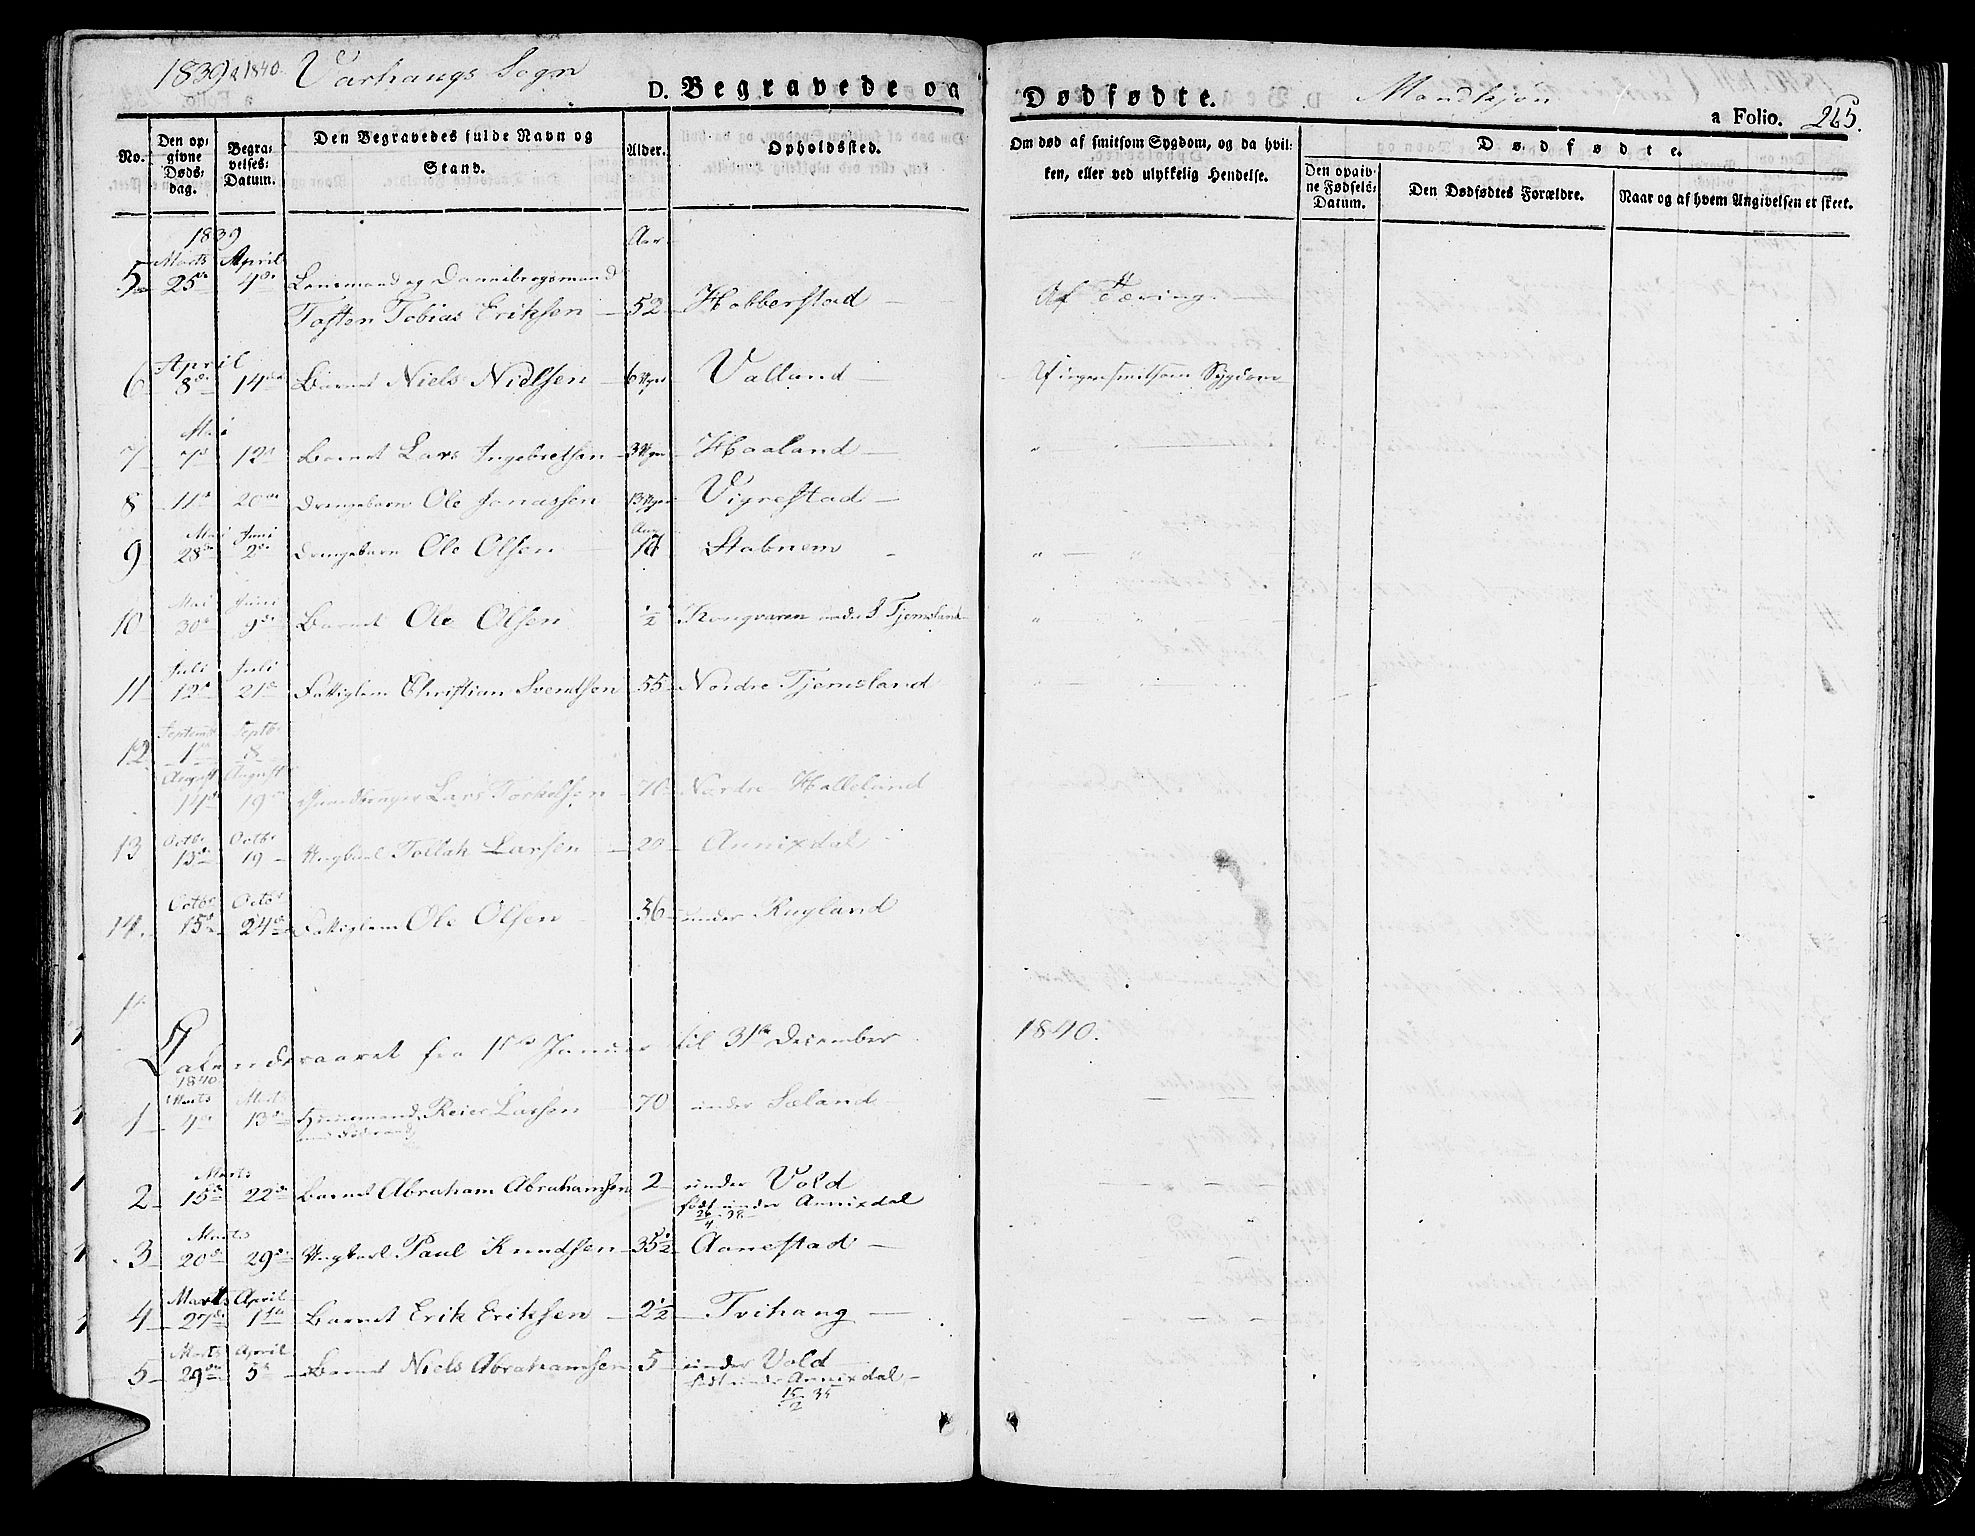 1839 & 1840. Varhaugs Sogn
D. Begravede og Dødfødte. D. Mandkjøn a Folio. 265.
No. Den opgivne Dødsdag. Begravelses-Datum. Den Begravedes fulde Navn og Stand. Alder. Opholdssted. Om død af smitsom Sygdom, og da hvilken, eller ved ulykkelig Hendelse. Dødfødte. Den opgivne Fødsels-Datum. Den Dødfødtes Forældre. Naar og af hvem Angivelsen er skeet.
1839 Aar
Marts April
5 25de 4de Lensmand og Dannebrogsmand
Tosten Tobias Eriksen 52 Hobberstad Af Tæring.
April
6 8de 14de Barnet Niels Nielsen 6 Uger Valland Af ingen smitsom Sygdom
Mai
7 7de 12te Barnet Lars Ingebretsen 3 Uger Haaland "
8 11te 20de Drengebarn Ole Jonassen 13 Uger Vigrestad
Mai Juni
9 28de 2den Drengebarn Ole Olsen Stabnem " "
Mai Juni
10 30te 9de Barnet Ole Olsen ½ Kongvaren under S. Tjemsland " "
Juli Juli
11 12te 21de Fattiglem Christian Svendsen 55 Nordre Tjemsland
Septemb Septbr
12 1ste 8
August August
14de 19de Lars Torkelsen 70 Nordre Halleland
Octbr Octbr
13 13de 19 Ungkarl Tollak Larsen 20 Annixdal
Octbr Octbr
14. 15de 24de Fattiglem Ole Olsen 56 under Rugland
Calenderaaret fra 1ste Januar til 31te December 1840.
1840
Marts Marts
1 4de 13de Huusmand Reier Larsen 70 under Sæland
Marts
2 15de 22de Barnet Abraham Abrahamsen 2 under Vold
født under Annixdal
26/4 38
Marts
3 20de 29de Ungkarl Paul Knudsen 35½ Aanestad
Marts April
4 27de 1ste Barnet Erik Eriksen 2½ Tvihaug
Marts April
5 29de 5te Barnet Niels Abrahamsen 5 under Vold
født under Annixdal
15/2 35